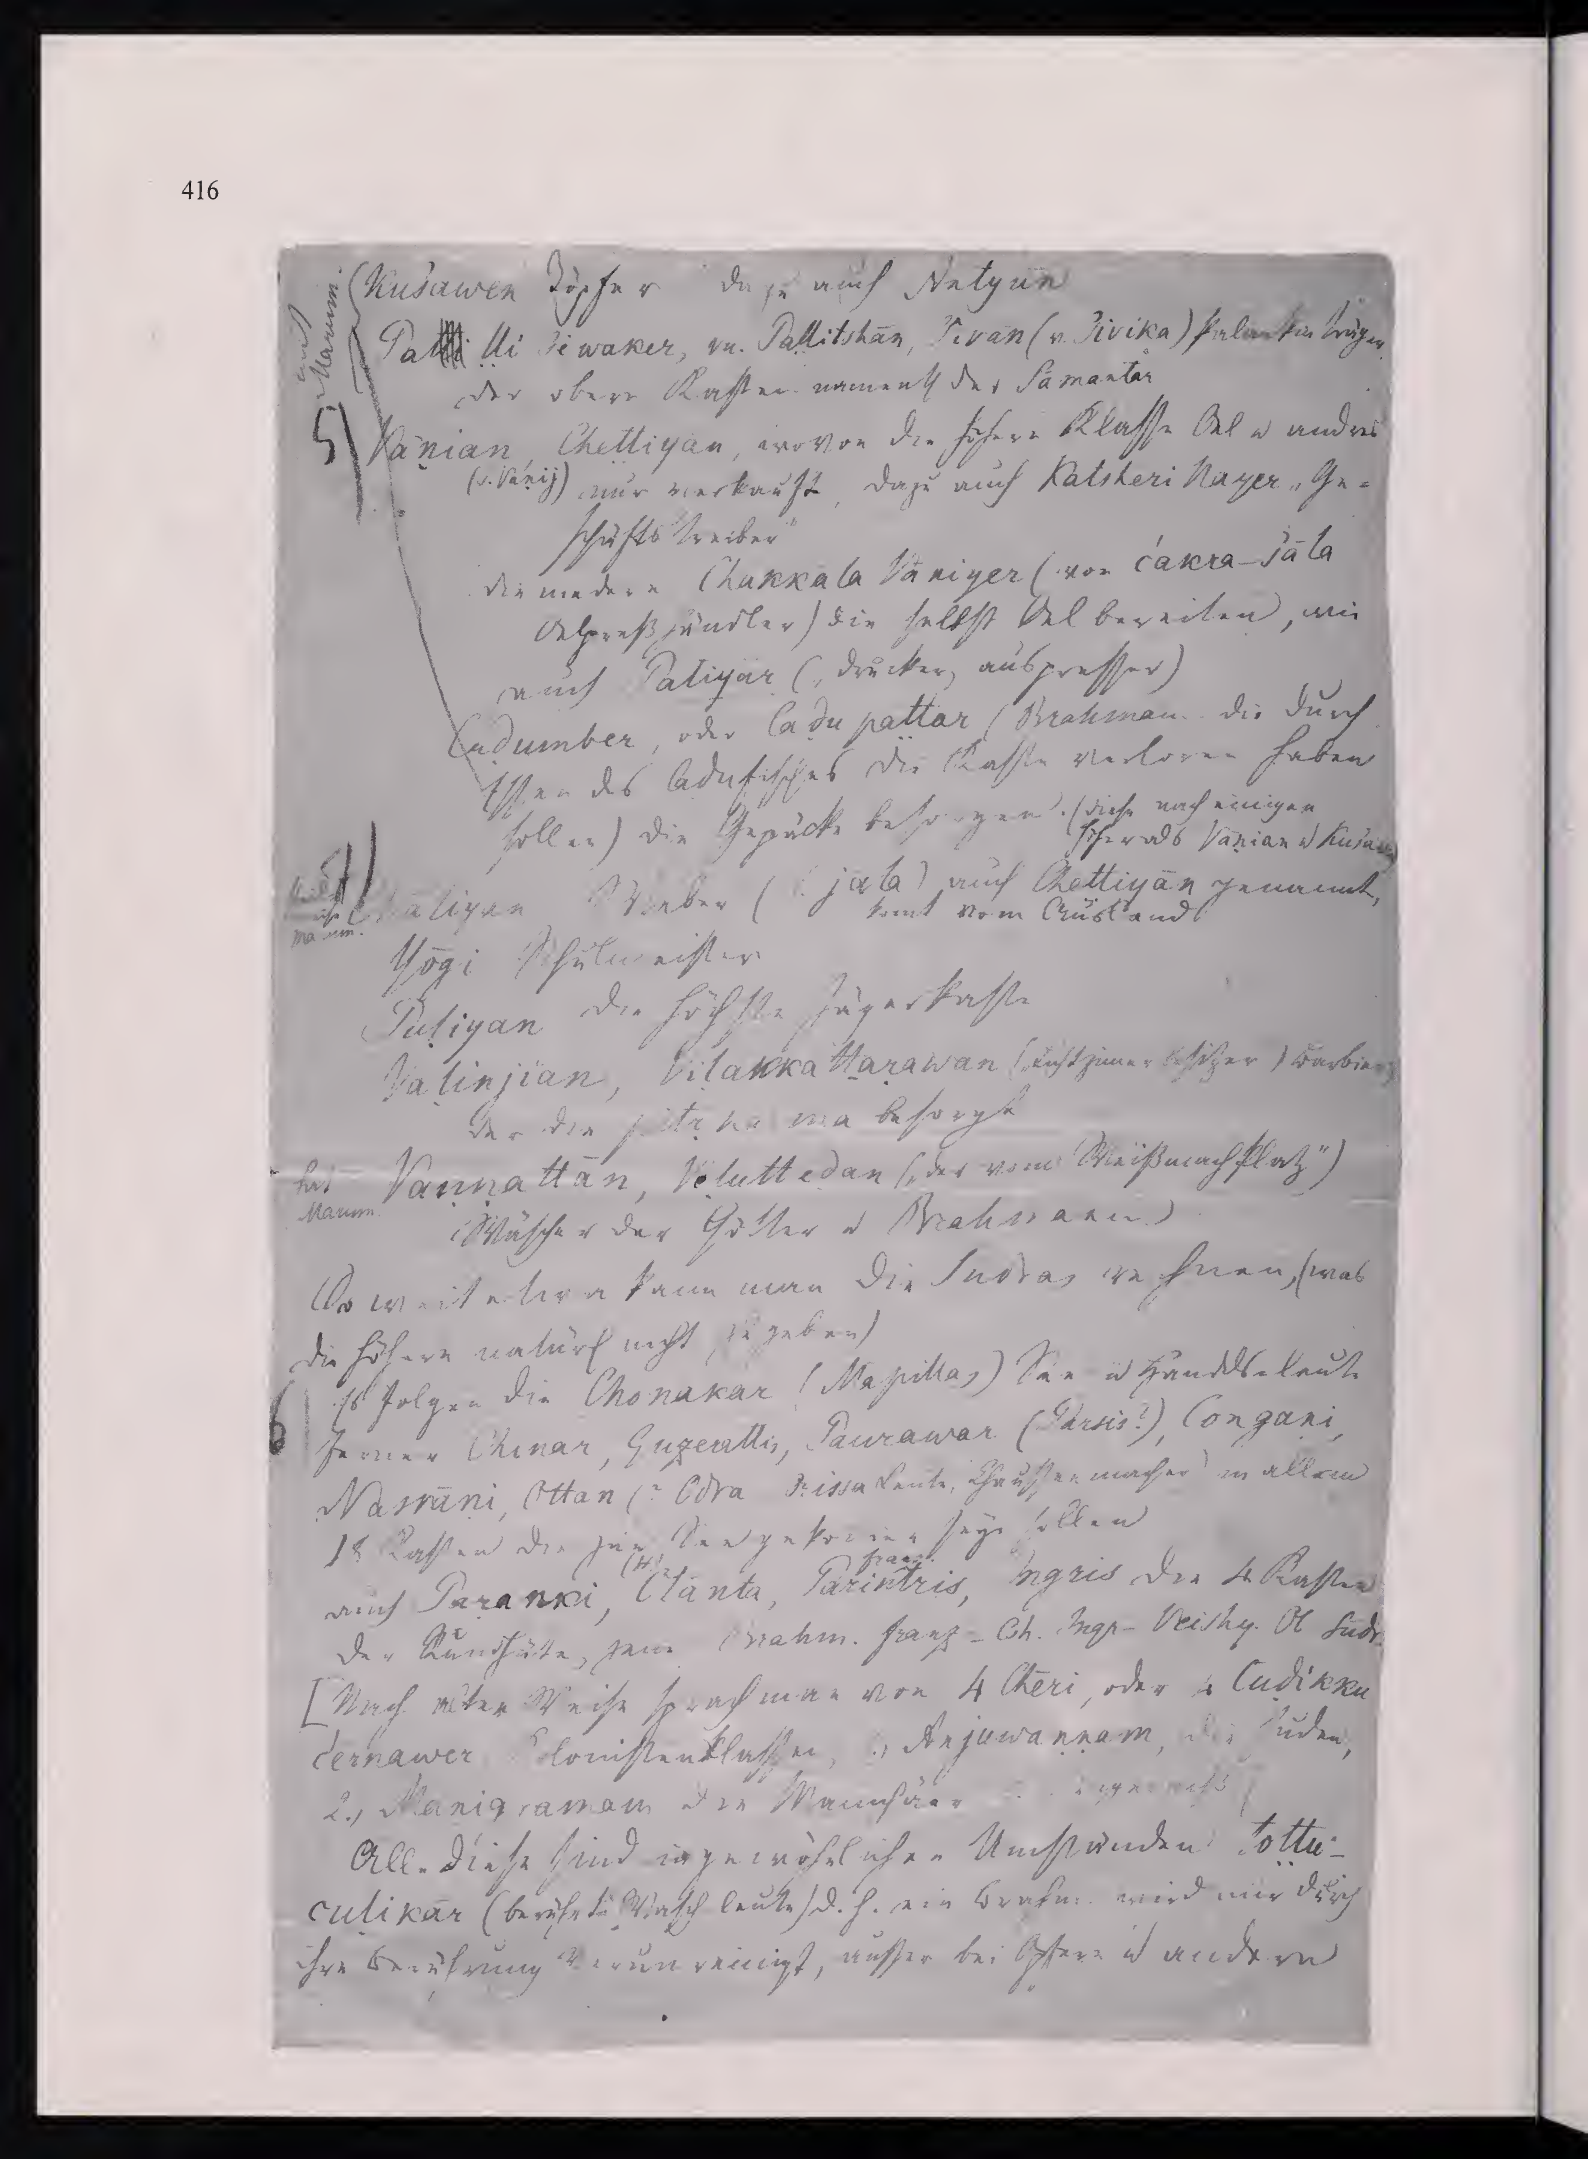 416
Kusawen Töpfer dazu auch Netyān
Palli Siwaker, vu. Pallitshān, Sivan (v. Sivika) Palankin träger
der obern Kasten namentl der Sāmantar
5) Vāṇian, Chettiyān, wovon die höhere Klasse Oel u andres
(v. Vaṇij) nur verkauft, dazu auch Katsheri Nayer „Ge-
schäfts treiber"
die niedere Chakkala Vāniyer (von ćakra-śāla
Oelpreßhändler) die selbst Oel bereiten, wie
auch Patiyār („drucker, auspresser)
Cadumber, oder Cadu pattar (Brahman. die durch
Essen des Cadufisches die Kaste verloren haben
sollen) die Gepäcke besorgen. (diese nach einigen
höher als Vāṇian u Kusaw
Chāliyan Weber (jāla) auch Chettiyān genannt,
komt vom Ausland
Yōgi Schulmeister
Puḷiyan die höchste Jägerkaste
Vaḷinjian, Viḷakkattaṟawan („Lichtzimer besitzer) Barbier
der die besorgt
hat
Marum.
Vaṇṇattān, Veluttedan („der vom Weißmachplatz")
(Wäscher der Götter u Brahmanen)
So weit etwa kann man die Sudras rechnen, (was
die höhern natürl nicht zugeben)
6 Es folgen die Chonakar (Mapillas) See u Handelsleute
ferner Chinar, Guzerattis, Paurawar (Parsis?), Congaṇi,
Nasrāṇi, Ottan (? Odra Orissa Leute, Chausseemacher in allem
18 Kasten die zur See gekomen seyn sollen
franz.
auch Paṟanki, Olānta, Parintris, Ingris die 4 Kasten
der Hüte, jene Brahm. franz - Csh. Ingr- Veishy. Ol Sudr.
[Nach alter Weise sprach man von 4 Chēri, oder 4 Cuḍikku
ćernawer Colonistenklassen, 1., Anjuwaṇṇam, die Juden,
2., Manigramam die
Alle diese sind in gewöhnlichen Umständen Tottu-
culikār (berührt Wasch leute) d. h. ein Brahm. wird nur durch
ihre Berührung verunreinigt, ausser bei Opfern u andern